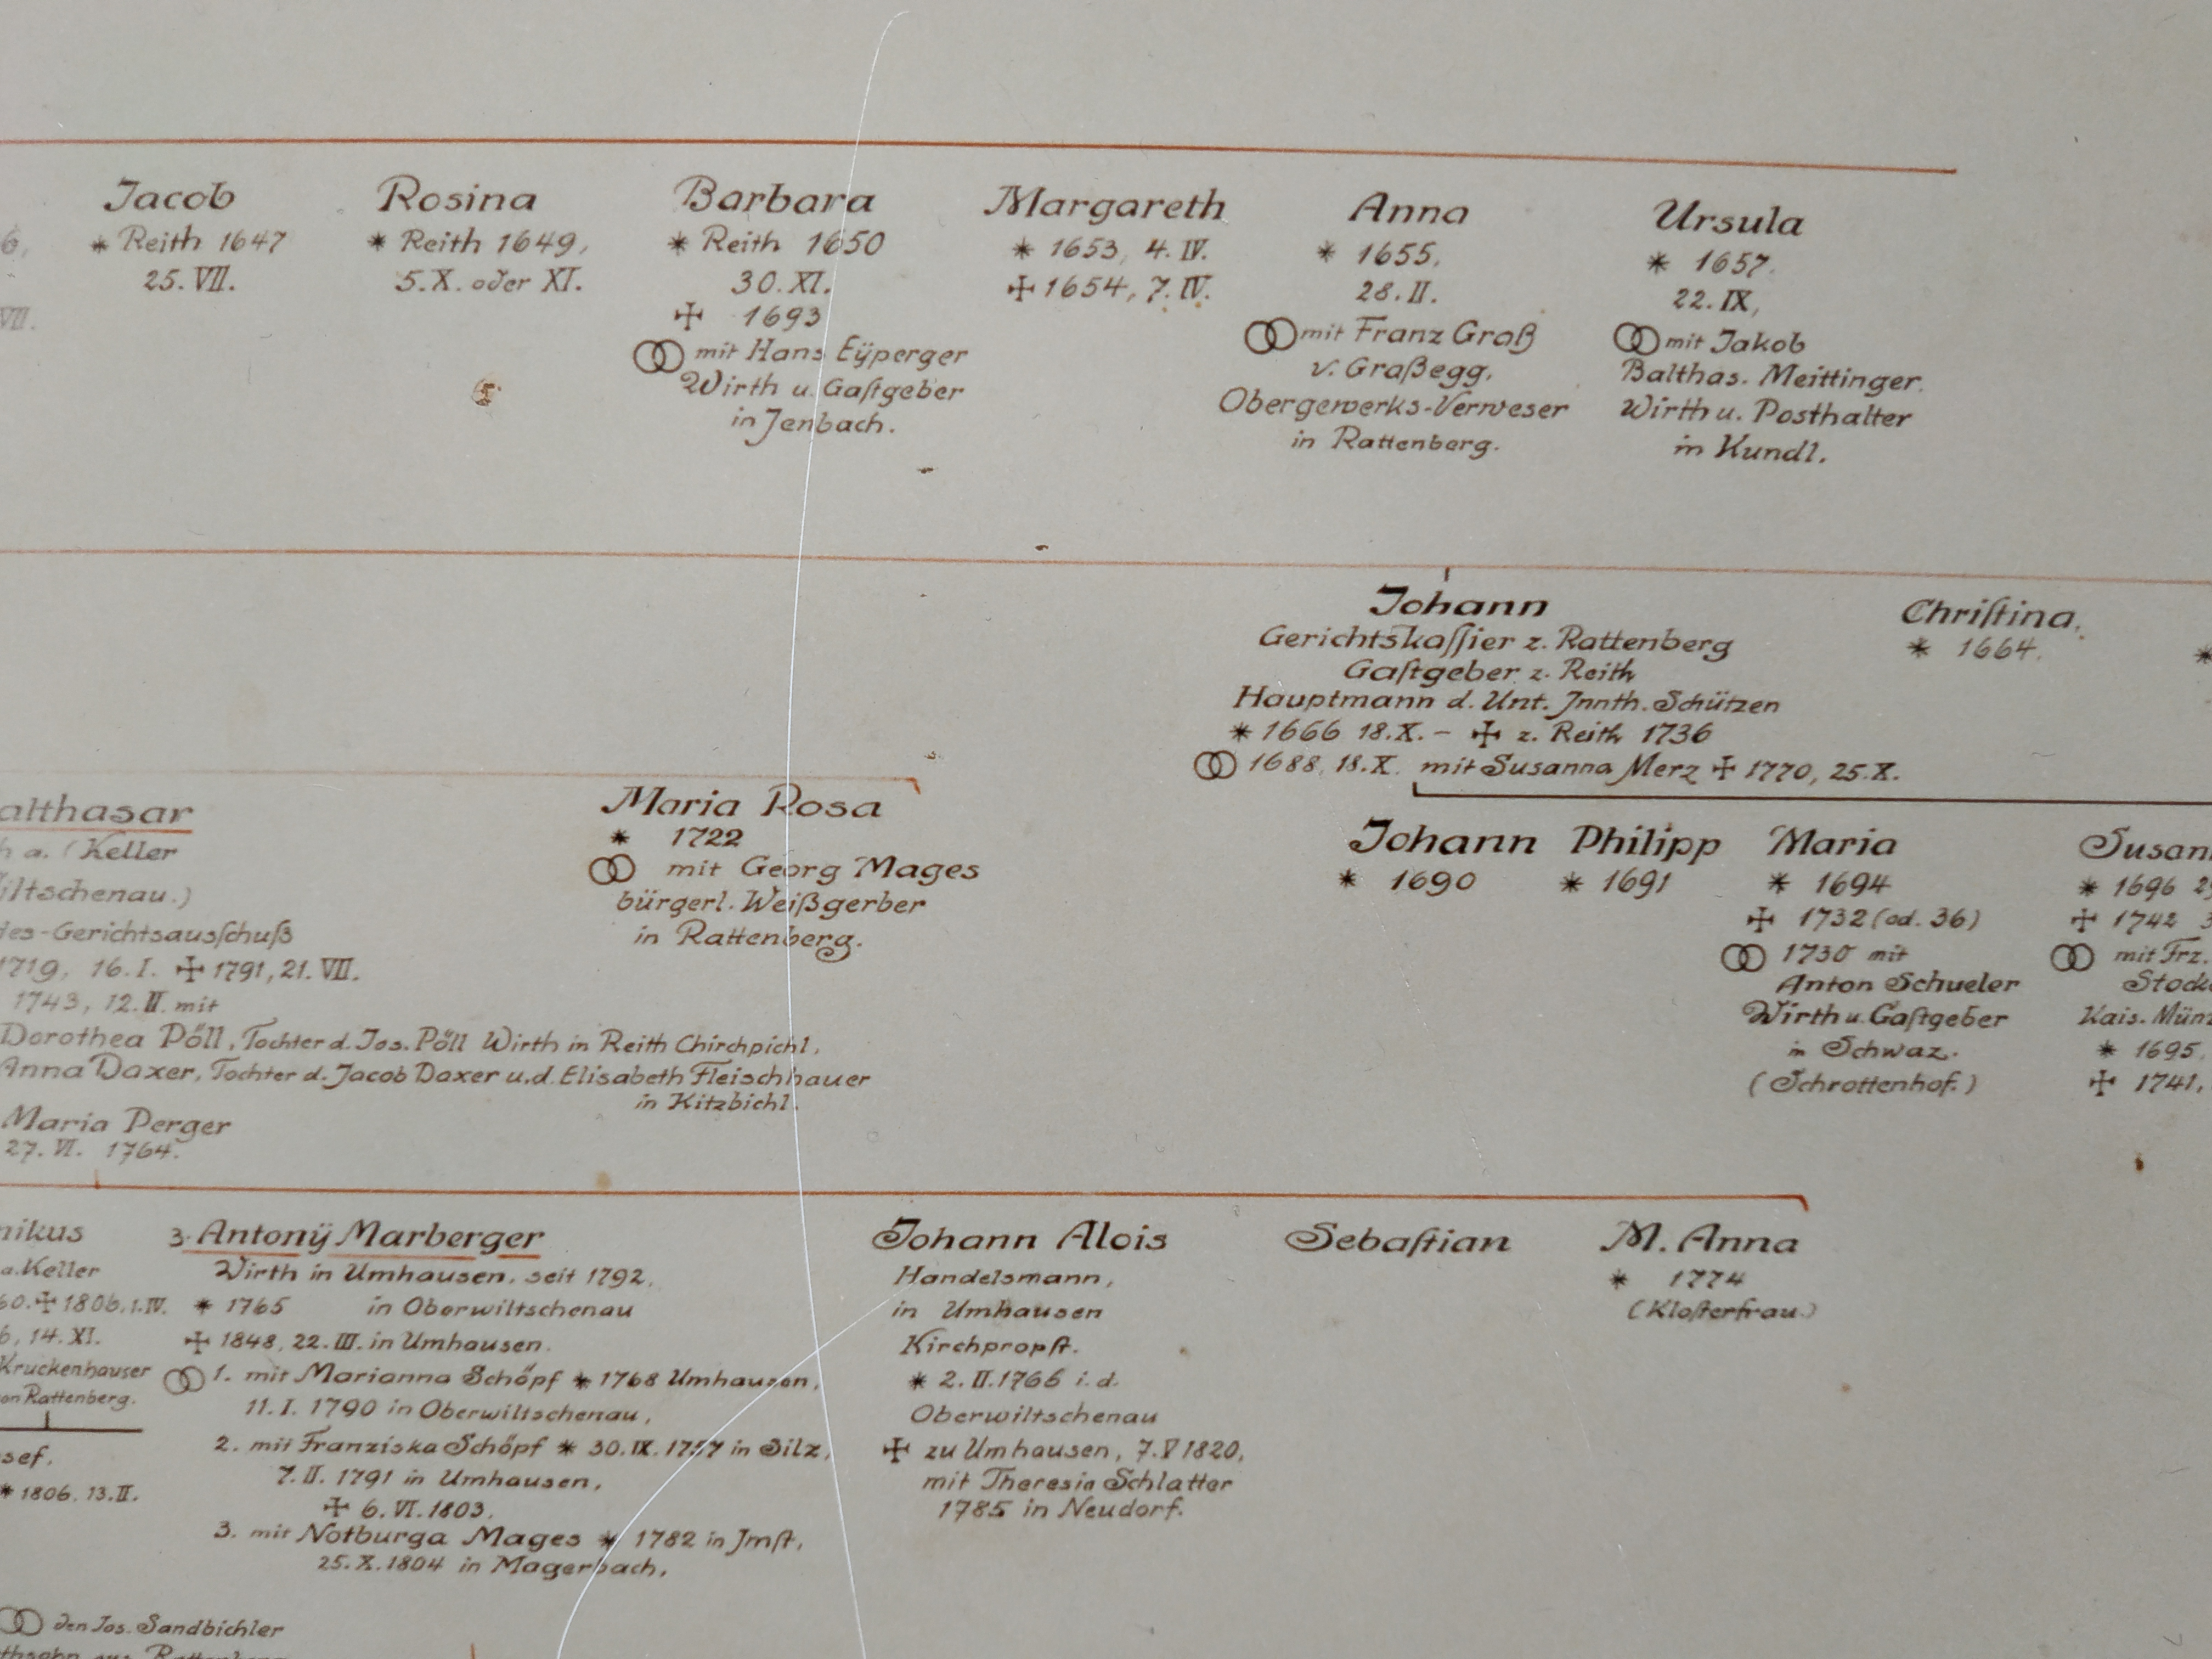 Jacob
* Reith 1647
25. VII.
Rosina
* Reith 1649,
5. X. oder XI.
Barbara
* Reith 1650
30. XI.
✠ 1693
⚭ mit Hans Eÿperger
Wirth u. Gaſtgeber
in Jenbach.
Margareth
* 1653, 4. IV.
✠ 1654, 7. IV.
Anna
* 1655,
28. II.
⚭ mit Franz Groß
v. Graßegg,
Obergewerks-Verweser
in Rattenberg.
Ursula
* 1657,
22. IX,
⚭ mit Jakob
Balthas. Meittinger.
Wirth u. Posthalter
in Kundl.
VII.
Johann
Gerichtskaſſier z. Rattenberg
Gaſtgeber z. Reith
Hauptmann d. Unt. Jnnth. Schützen
* 1666 18.X. – ✠ z. Reith 1736
⚭ 1688, 18.X. mit Susanna Merz ✠ 1770, 25.X.
Chriſtina,
* 1664.
*
althasar
h a. (Keller
iltschenau.)
des-Gerichtsausſchuß
1719, 16. I. ✠ 1791, 21. VII.
1743, 12. II. mit
Dorothea Pöll, Tochter d. Jos. Pöll Wirth in Reith Chirchpichl,
Anna Daxer, Tochter d. Jacob Daxer u. d. Elisabeth Fleischhauer
in Kitzbichl.
Maria Perger
27. VI. 1764.
Maria Rosa
* 1722
⚭ mit Georg Mages
bürgerl. Weißgerber
in Rattenberg.
Johann
* 1690
Philipp
* 1691
Maria
* 1694
✠ 1732 (od. 36)
⚭ 1730 mit
Anton Schueler
Wirth u. Gaſtgeber
in Schwaz.
(Schrottenhof.)
Susan
* 1696
✠ 1742
⚭ mit Frz.
Stock
Kais. Münz
* 1695,
✠ 1741,
nikus
a. Keller
60. ✠ 1806. 1. IV.
6, 14. XI.
Kruckenhauser
on Rattenberg.
sef.
* 1806. 13. II.
3. Antonÿ Marberger
Wirth in Umhausen. seit 1792.
* 1765 in Oberwiltschenau
✠ 1848, 22. III. in Umhausen.
⚭ 1. mit Marianna Schöpf * 1768 Umhausen,
11. I. 1790 in Oberwiltschenau,
2. mit Franziska Schöpf * 30. IX. 1757 in Silz,
7. II. 1791 in Umhausen,
✠ 6. VI. 1803.
3. mit Notburga Mages * 1782 in Jmſt,
25. X. 1804 in Magerbach,
Johann Alois
Handelsmann,
in Umhausen
Kirchpropſt.
* 2. II. 1766 i. d.
Oberwiltschenau
✠ zu Umhausen, 7. V 1820,
mit Theresia Schlatter
1785 in Neudorf.
Sebaſtian
M. Anna
* 1774
(Kloſterfrau.)
⚭ den Jos. Sandbichler